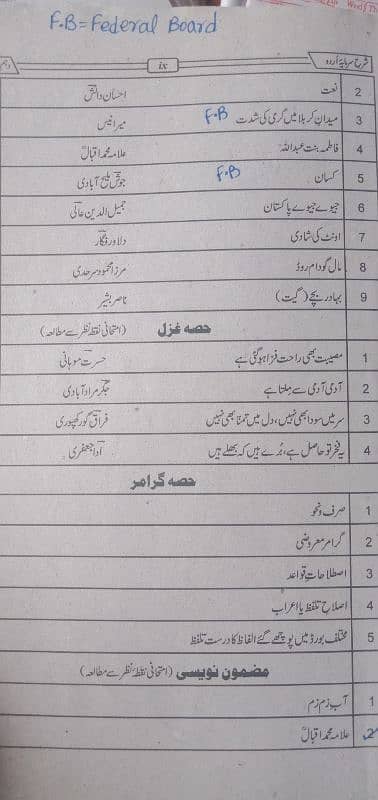 F.B = Federal Board
شرح سرمایۂ اردو ix دہم
2 نعت احسان دانش
3 میدانِ کربلا میں گرمی کی شدت F.B میر انیس
4 فاطمہ بنت عبداللہ علامہ محمد اقبالؒ
5 کسان F.B جوش ملیح آبادی
6 جیوے جیوے پاکستان جمیل الدین عالی
7 اونٹ کی شادی دلاور فگار
8 مال گودام روڈ مرزا محمود سرحدی
9 بہادر بچے (گیت) ناصر بشیر
حصہ غزل (امتحانی نقطۂ نظر سے مطالعہ)
1 مصیبت بھی راحت فزا ہو گئی ہے حسرت موہانی
2 آدمی آدمی سے ملتا ہے جگر مراد آبادی
3 سر میں سودا بھی نہیں، دل میں تمنا بھی نہیں فراق گورکھپوری
4 یہ فخر تو حاصل ہے، بُرے ہیں کہ بھلے ہیں ادا جعفری
حصہ گرامر
1 صرف و نحو
2 گرامر معروضی
3 اصطلاحاتِ قواعد
4 اصلاحِ تلفظ یا اعراب
5 مختلف بورڈ میں پوچھے گئے الفاظ کا درست تلفظ
مضمون نویسی (امتحانی نقطۂ نظر سے مطالعہ)
1 آبِ زم زم
2 علامہ محمد اقبالؒ